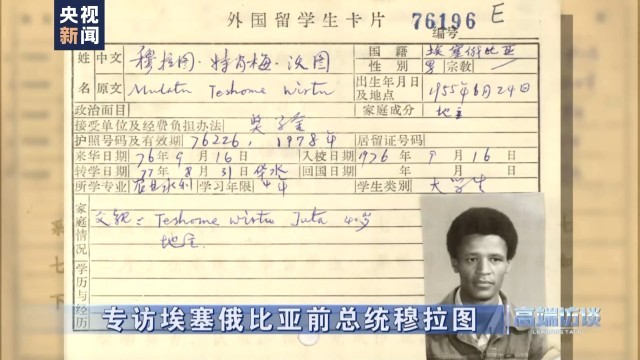 央视
新闻
外国留学生卡片
76196 E
编号
姓 中文 穆拉图·特肖梅·沃图 国籍 埃塞俄比亚
男 宗教
名 原文 Mulatu Teshome Wirtu 出生年月日及地点 1955年6月24日
政治面目 家庭成分 地主
接受单位及经费负担办法 奖学金
护照号码及有效期 76226, 1978年 居留证号码
来华日期 76年9月16日 入校日期 1976年9月16日
转学日期 77年8月31日 华水 回国日期 年 月 日
所学专业 农田水利 学习年限 4年 学生类别 大学生
家庭情况
父亲: Teshome Wirtu Juta 40岁
地主.
学历与经历
专访埃塞俄比亚前总统穆拉图
高端访谈